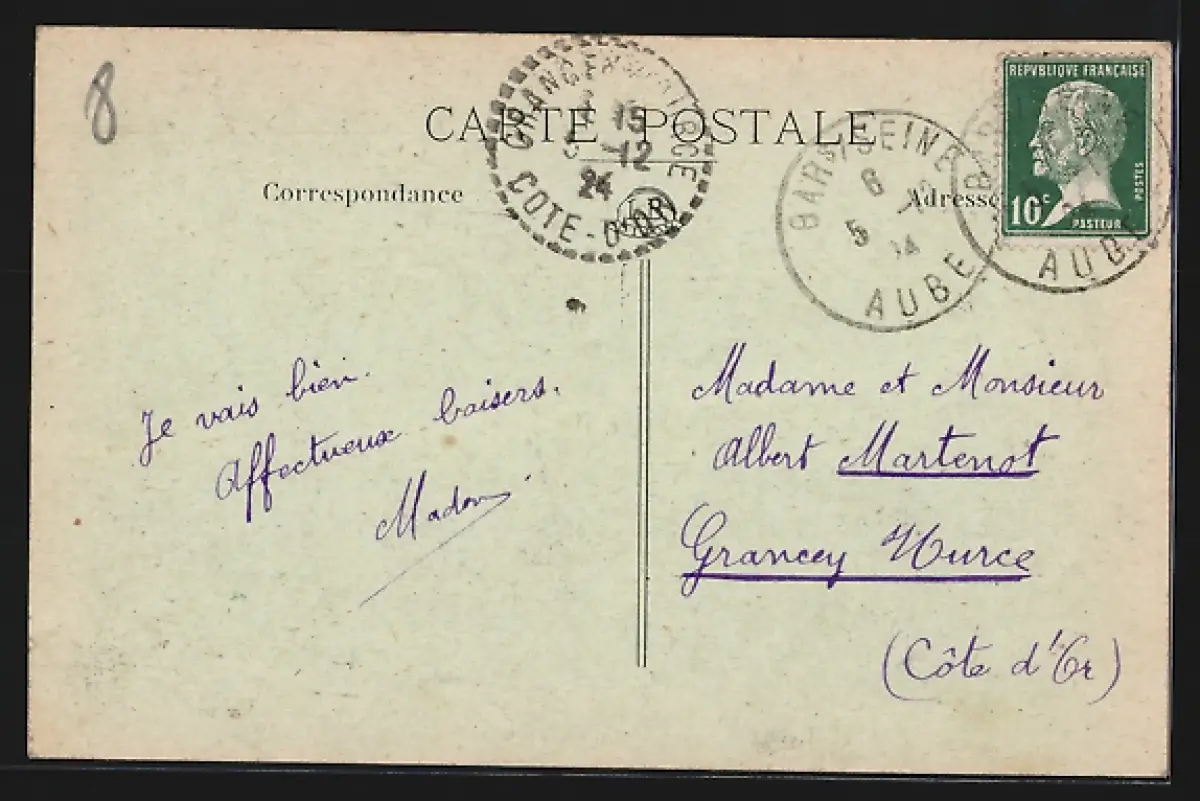 8
CARTE POSTALE
Correspondance
Adresse
GRANCEY
15
12
24
COTE-D'OR
BAR S/SEINE
6
5
AUBE
AUBE
REPVBLIQVE FRANÇAISE
10c
POSTES
PASTEUR
Je vais bien.
Affectueux baisers.
Madame et Monsieur
Albert Martenot
Grancey
(Côte d'Or)